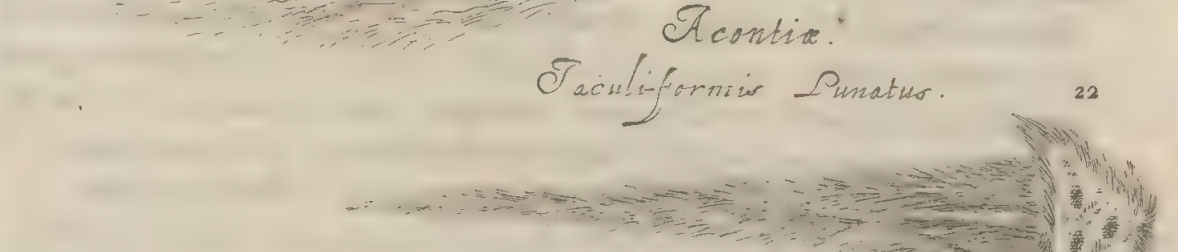 Acontiæ.
Jaculiformis Lunatus. 22